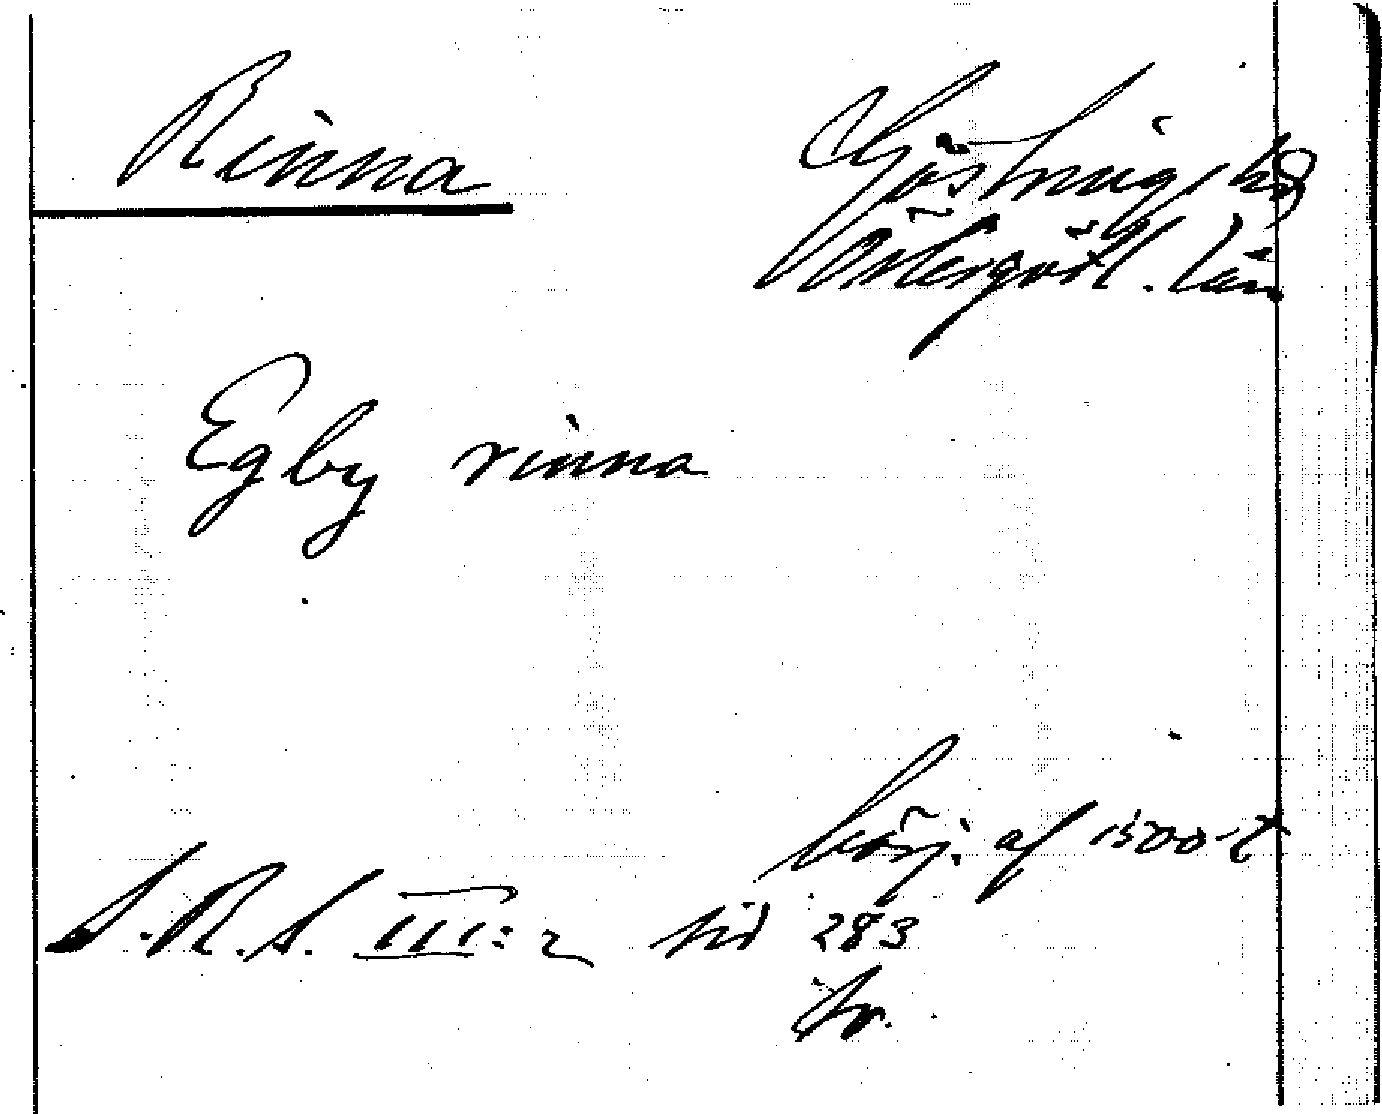 Rinna
Göstrings hd
Östergötl. län
Egby rinna
börj. af 1500-t
S.R.S. III:2 sid 283
tr.